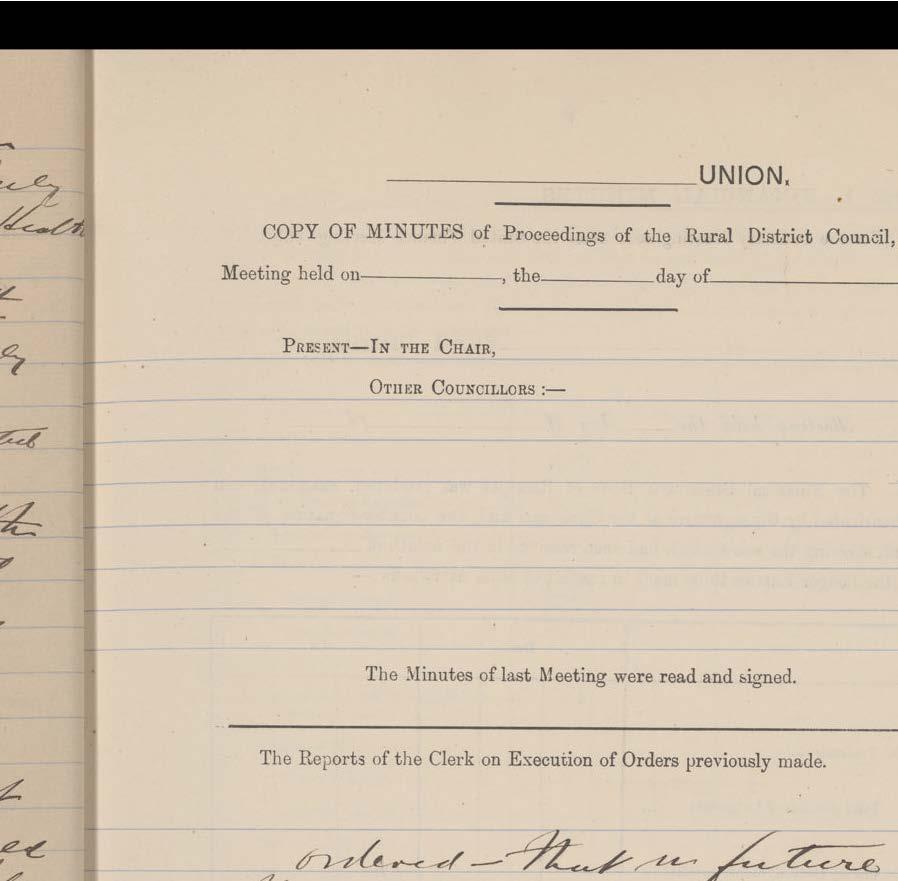 UNION.
COPY OF MINUTES of Proceedings of the Rural District Council,
Meeting held on , the day of
PRESENT—IN THE CHAIR,
OTHER COUNCILLORS :—
The Minutes of last Meeting were read and signed.
The Reports of the Clerk on Execution of Orders previously made.
ordered – That in future